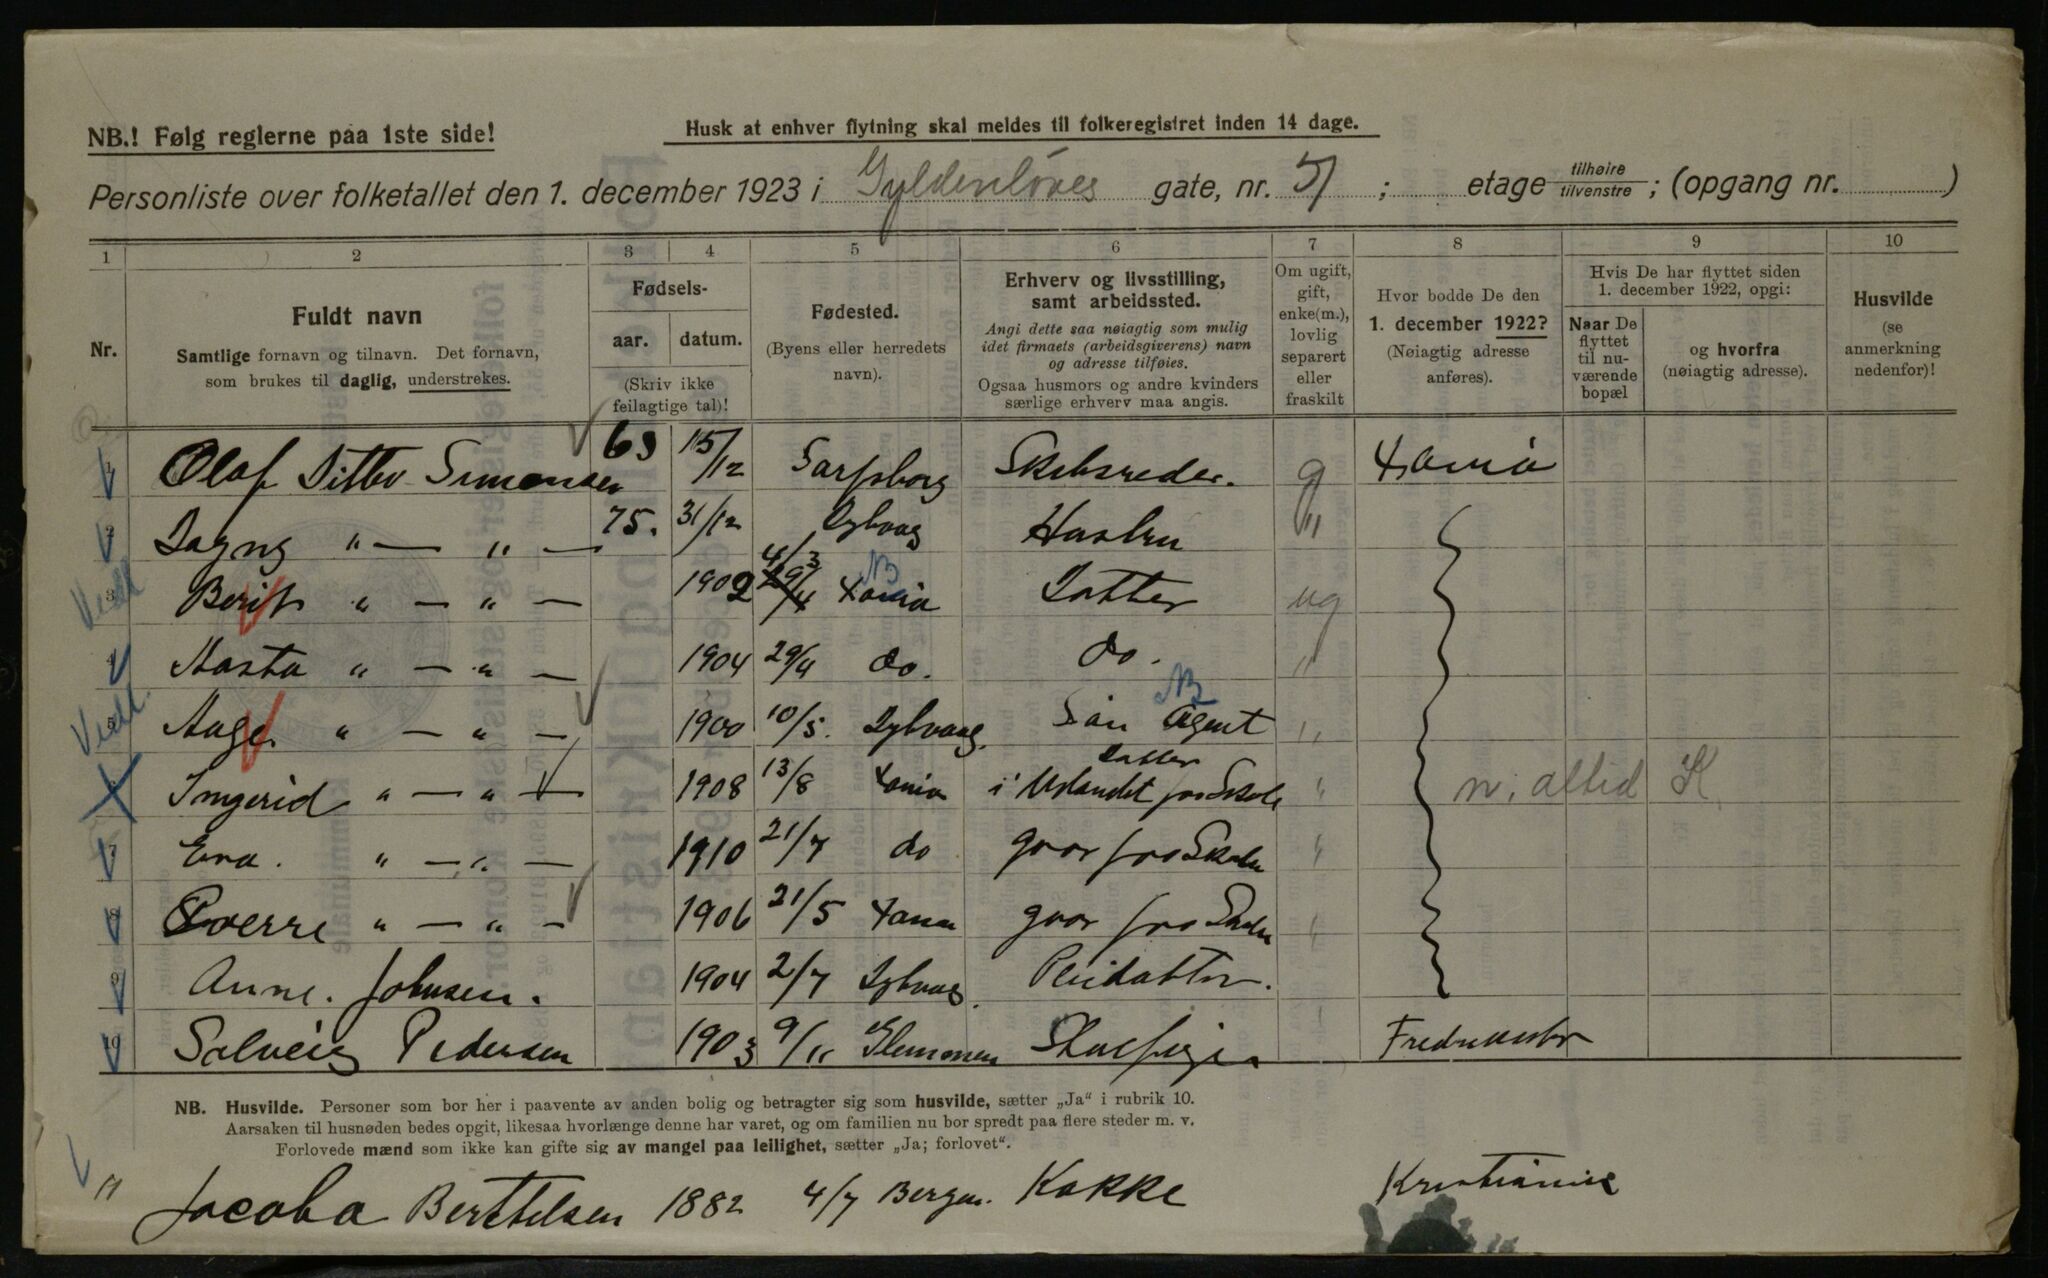 NB.! Følg reglerne paa 1ste side!
Husk at enhver flytning skal meldes til folkeregistret inden 14 dage.
Personliste over folketallet den 1. december 1923 i Gyldenløves gate, nr. 51 ; etage tilhøire tilvenstre ; (opgang nr. )
1 2 3 4 5 6 7 8 9 10
Nr.
Fuldt navn
Samtlige fornavn og tilnavn. Det fornavn,
som brukes til daglig, understrekes.
Fødsels-
aar. datum.
(Skriv ikke
feilagtige tal)!
Fødested.
(Byens eller herredets
navn).
Erhverv og livsstilling,
samt arbeidssted.
Angi dette saa nøiagtig som mulig
idet firmaets (arbeidsgiverens) navn
og adresse tilføies.
Ogsaa husmors og andre kvinders
særlige erhverv maa angis.
Om ugift,
gift,
enke(m.),
lovlig
separert
eller
fraskilt
Hvor bodde De den
1. december 1922?
(Nøiagtig adresse
anføres).
Hvis De har flyttet siden
1. december 1922, opgi:
Naar De
flyttet
til nu-
værende
bopæl
og hvorfra
(nøiagtig adresse).
Husvilde
(se
anmerkning
nedenfor)!
1 Olaf Ditlev Simonsen 63 15/12 Sarpsborg Skibsreder. g Xania
2 Dagny " — " — 75. 31/12 Dybvaag Hustru "
3 Berit " — " — 1902 4/3 29/4 Xania NB Datter ug
4 Aasta " — " — 1904 29/4 do. do. "
5 Aage " — " — 1900 10/5. Dybvaag. Søn Agent NB "
6 Ingerid " — " — 1908 13/8 Xania Datter i Utlandet paa Skole " n. altid K.
7 Eva. " — " — 1910 21/7 do gaar paa Skole "
8 Sverre " — " — 1906 21/5 Xania gaar paa Skole "
9 Anne. Johnsen. 1904 2/7 Dybvaag.
10 Solveig Pedersen 1903 9/11 Glemmen Fredrikstad
NB. Husvilde. Personer som bor her i paavente av anden bolig og betragter sig som husvilde, sætter „Ja“ i rubrik 10.
Aarsaken til husnøden bedes opgit, likesaa hvorlænge denne har varet, og om familien nu bor spredt paa flere steder m. v.
Forlovede mænd som ikke kan gifte sig av mangel paa leilighet, sætter „Ja; forlovet“.
11 Jacoba Berthelsen 1882 4/7 Bergen. Kokke Kristiania